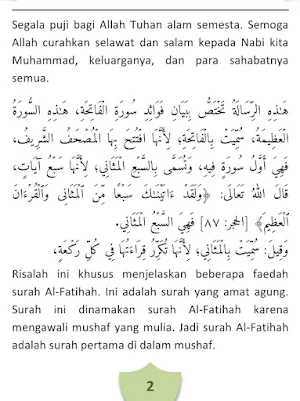 Segala puji bagi Allah Tuhan alam semesta. Semoga
Allah curahkan selawat dan salam kepada Nabi kita
Muhammad, keluarganya, dan para sahabatnya
semua.
هَـٰذِهِ الرِّسَالَةُ تَخْتَصُّ بِبَيَانِ فَوَائِدِ سُورَةِ الْفَاتِحَةِ، هَـٰذِهِ السُّورَةُ
الْعَظِيمَةُ، سُمِّيَتْ بِالْفَاتِحَةِ؛ لِأَنَّهَا افْتُتِحَ بِهَا الْمُصْحَفُ الشَّرِيفُ،
فَهِيَ أَوَّلُ سُورَةٍ فِيهِ، وَتُسَمَّى بِالسَّبْعِ الْمَثَانِي؛ لِأَنَّهَا سَبْعُ آيَاتٍ،
قَالَ اللهُ تَعَالَى: ﴿وَلَقَدْ ءَاتَيْنَـٰكَ سَبْعًا مِّنَ ٱلْمَثَانِي وَٱلْقُرْءَانَ
ٱلْعَظِيمَ﴾ [الحجر: ٨٧] فَهِيَ السَّبْعُ الْمَثَانِي.
وَقِيلَ: سُمِّيَتْ بِالْمَثَانِي؛ لِأَنَّهَا تُكَرَّرُ قِرَاءَتُهَا فِي كُلِّ رَكْعَةٍ،
Risalah ini khusus menjelaskan beberapa faedah
surah Al-Fatihah. Ini adalah surah yang amat agung.
Surah ini dinamakan surah Al-Fatihah karena
mengawali mushaf yang mulia. Jadi surah Al-Fatihah
adalah surah pertama di dalam mushaf.
2